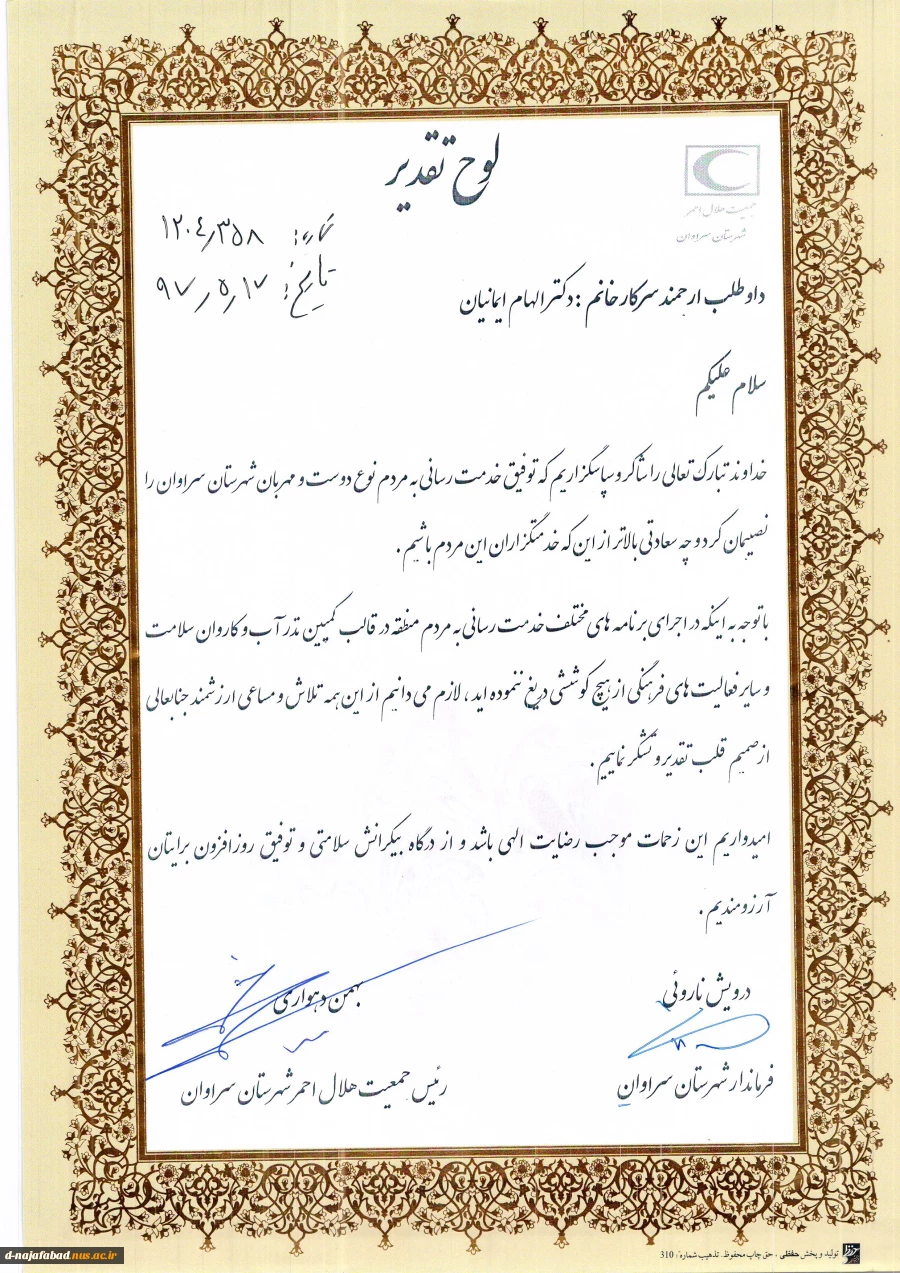 لوح تقدیر
جمعیت هلال احمر
شهرستان سراوان
شماره: ۱۲۰۴٫۳۵۸
تاریخ: ۹۷٫۵٫۱۷
داوطلب ارجمند سرکار خانم : دکتر الهام ایمانیان
سلام علیکم
خداوند تبارک تعالی را شاکر و سپاسگزاریم که توفیق خدمت رسانی به مردم نوع دوست و مهربان شهرستان سراوان را
نصیبمان کرد و چه سعادتی بالاتر از این که خدمتگزاران این مردم باشیم .
باتوجه به اینکه در اجرای برنامه های مختلف خدمت رسانی به مردم منطقه در قالب کمپین نذر آب و کاروان سلامت
و سایر فعالیت های فرهنگی از هیچ کوششی دریغ ننموده اید ، لازم می دانیم از این همه تلاش و مساعی ارزشمند جنابعالی
از صمیم قلب تقدیر و تشکر نماییم .
امیدواریم این زحمات موجب رضایت الهی باشد و از درگاه بیکرانش سلامتی و توفیق روزافزون برایتان
آرزومندیم .
درویش ناروئی
بهمن دهواری
فرماندار شهرستان سراوان
رئیس جمعیت هلال احمر شهرستان سراوان
تولید و پخش حفظی ، حق چاپ محفوظ. تذهیب شماره: 310
d-najafabad.nus.ac.ir